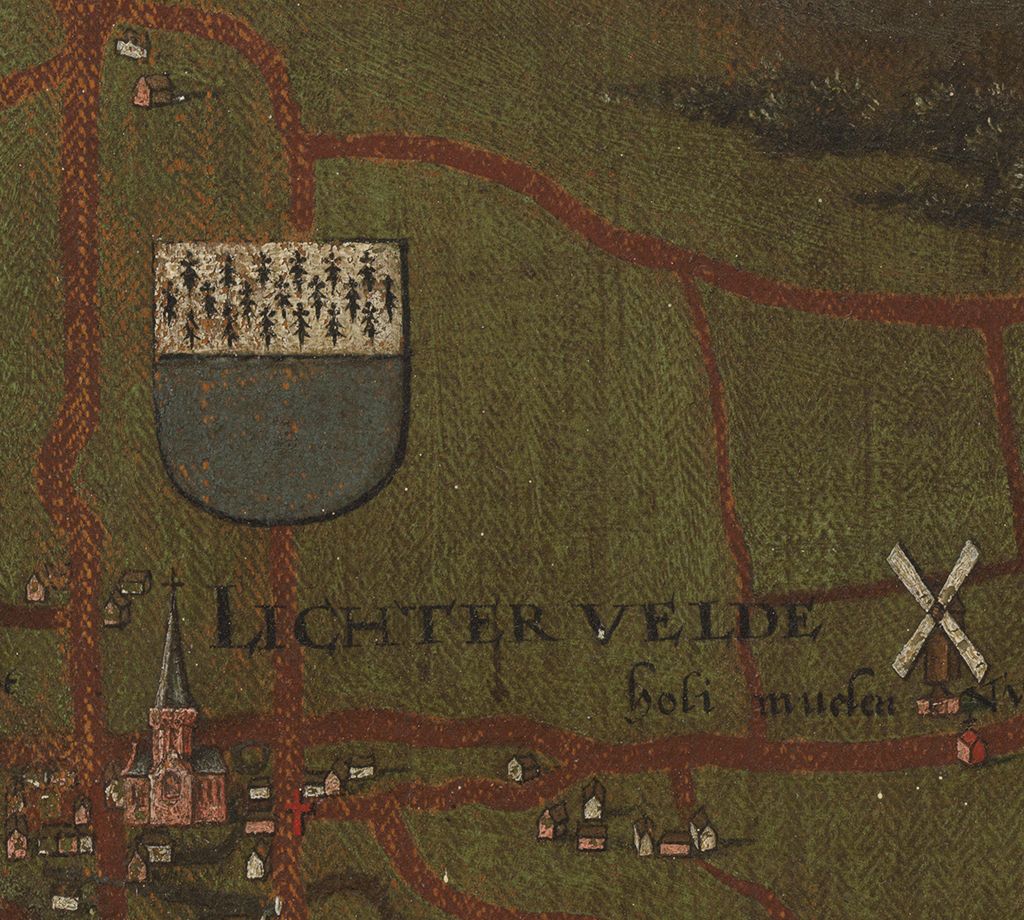 LICHTERVELDE
holi muelen